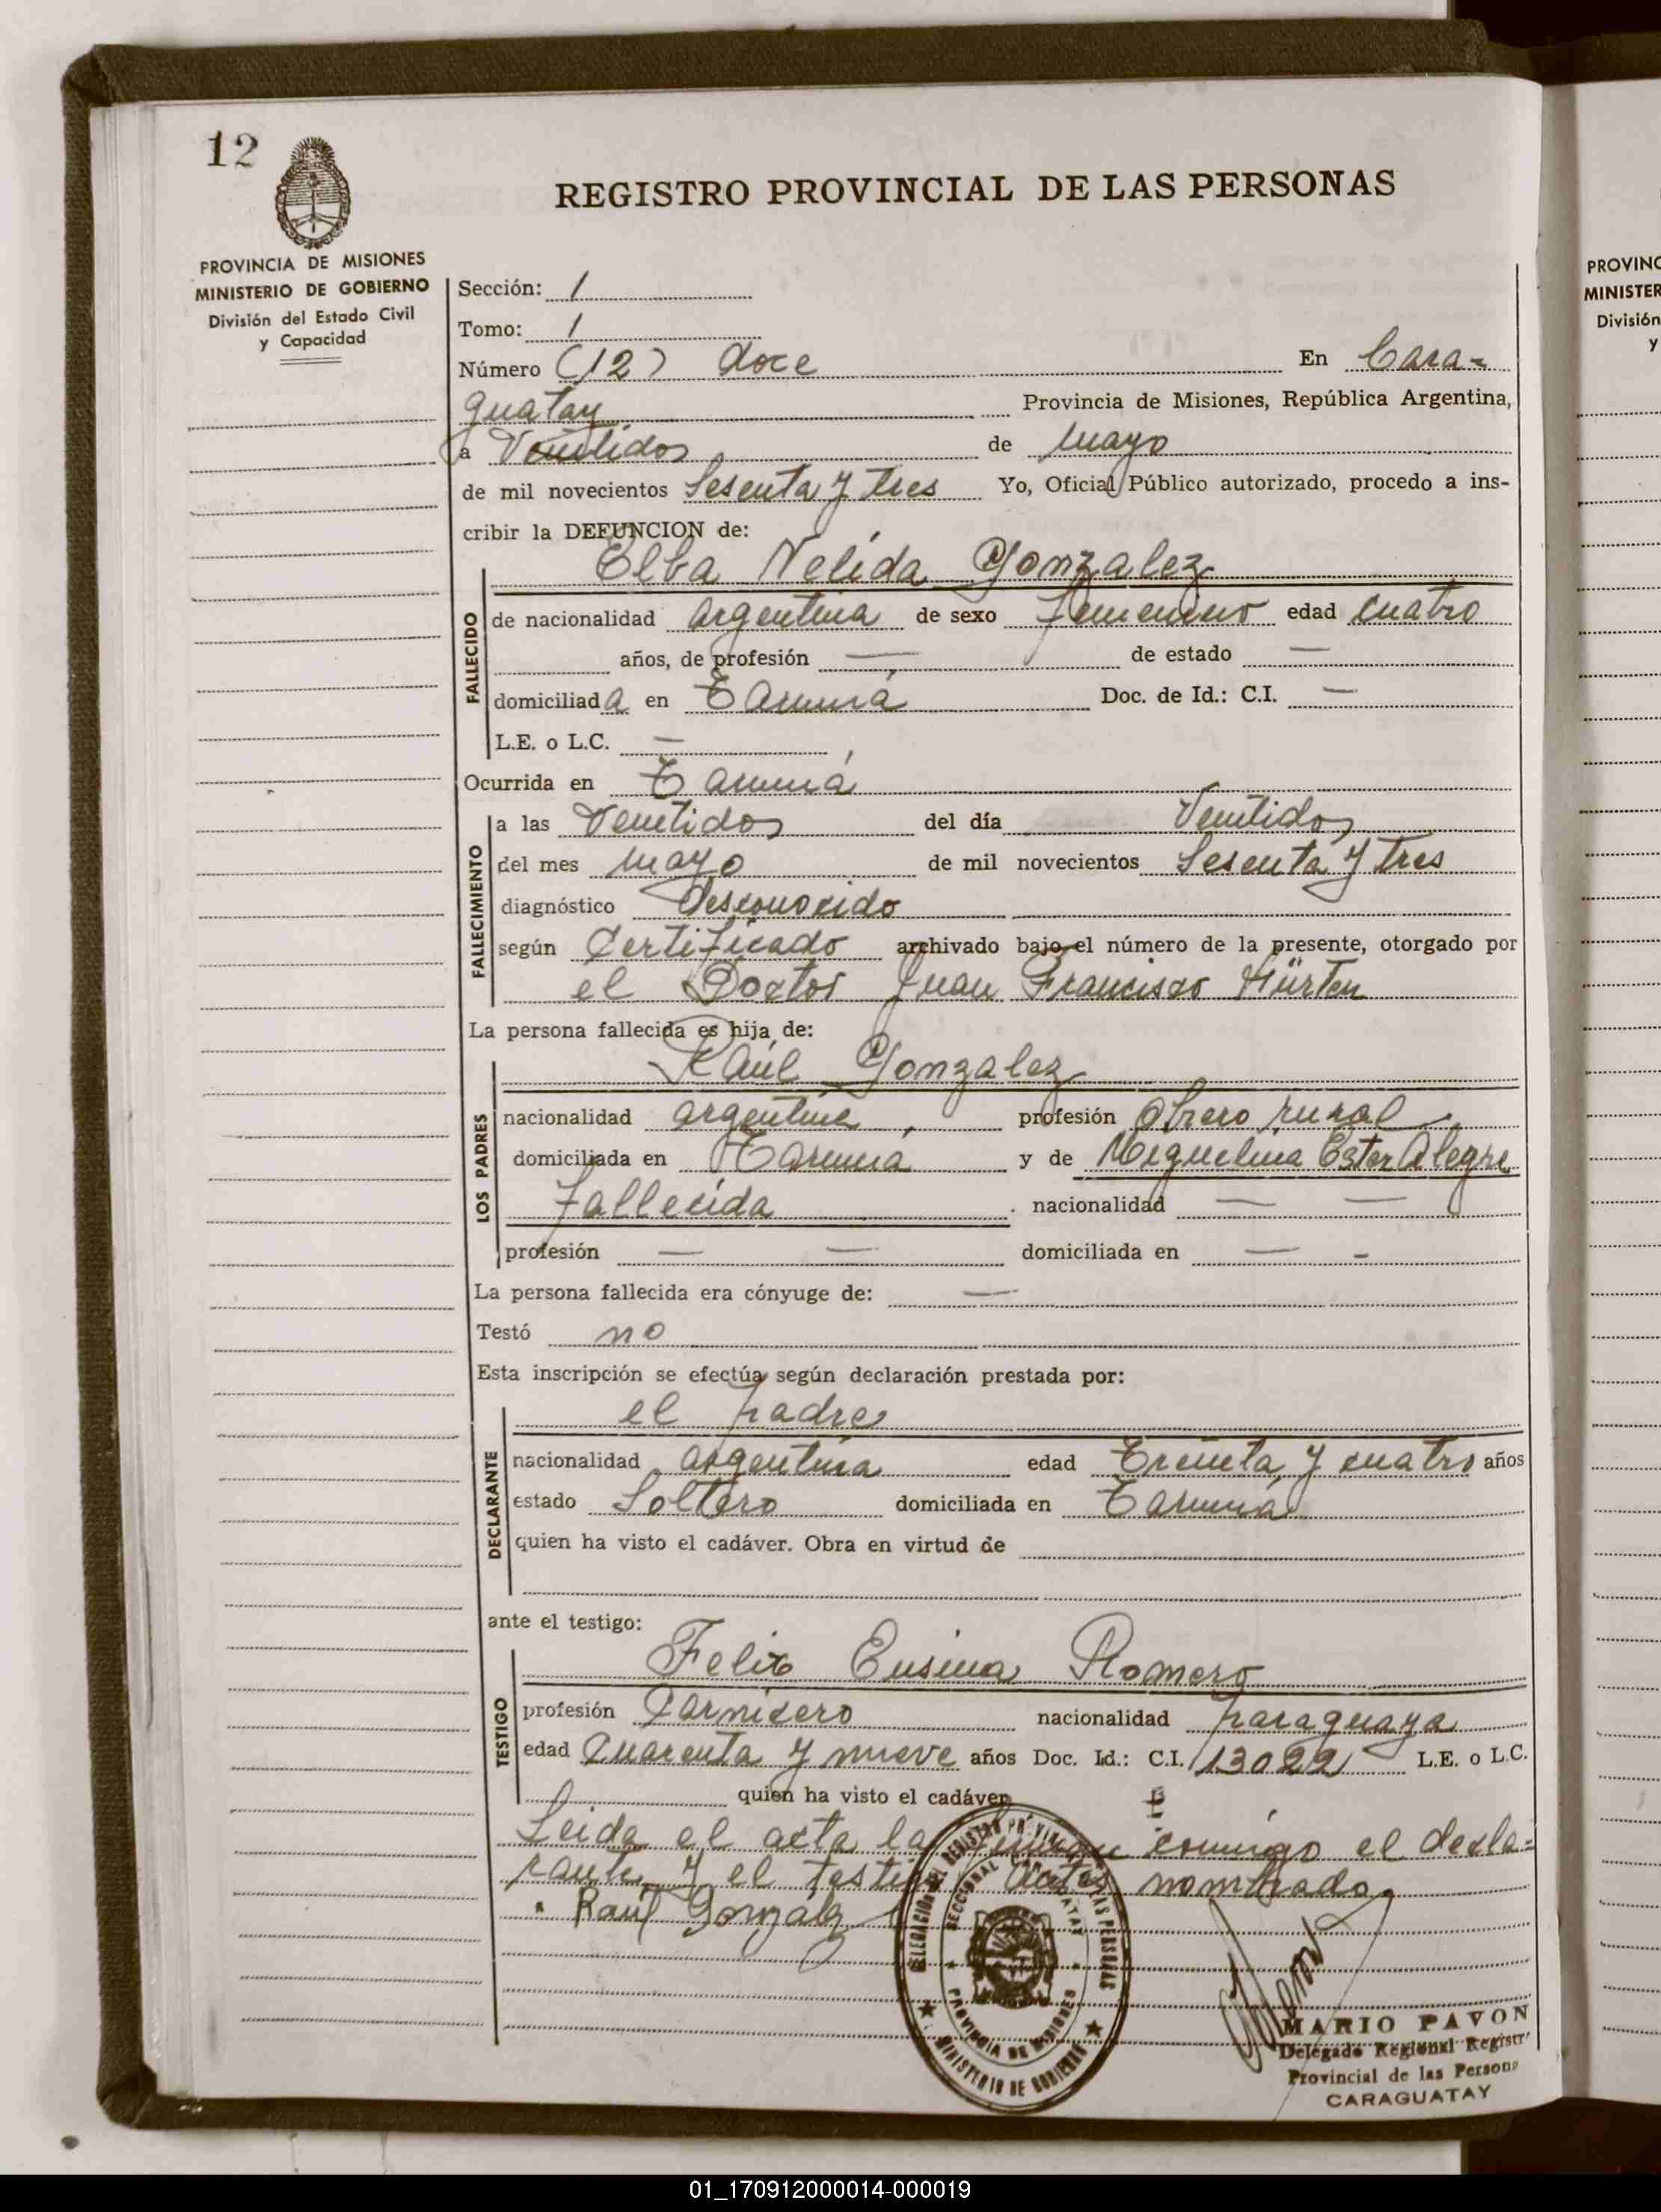 12
REGISTRO PROVINCIAL DE LAS PERSONAS
PROVINCIA DE MISIONES
MINISTERIO DE GOBIERNO
División del Estado Civil
y Capacidad
Sección: 1
Tomo: 1
Número (12) doce En Cara-
guatay Provincia de Misiones, República Argentina,
a Veintidos de mayo
de mil novecientos Sesenta y tres Yo, Oficial Público autorizado, procedo a ins-
cribir la DEFUNCION de:
Elba Nelida Gonzalez
FALLECIDO
de nacionalidad argentina de sexo femenino edad cuatro
años, de profesión — de estado —
domiciliada en Tarumá Doc. de Id.: C.I. —
L.E. o L.C. —
Ocurrida en Tarumá
FALLECIMIENTO
a las Veintidos del día Veintidos
del mes mayo de mil novecientos Sesenta y tres
diagnóstico desconocido
según Certificado archivado bajo el número de la presente, otorgado por
el Doctor Juan Francisco Hürten
La persona fallecida es hija de:
Raúl Gonzalez
LOS PADRES
nacionalidad argentina profesión Obrero rural
domiciliada en Tarumá y de Miguelina Ester Alegre
fallecida . nacionalidad — —
profesión — — domiciliada en — -
La persona fallecida era cónyuge de: —
Testó no
Esta inscripción se efectúa según declaración prestada por:
el padre
DECLARANTE
nacionalidad argentina edad Treinta y cuatro años
estado Soltero domiciliada en Tarumá
quien ha visto el cadáver. Obra en virtud de
ante el testigo:
Felix Ensina Romero
TESTIGO
profesión Carnicero nacionalidad paraguaya
edad Cuarenta y nueve años Doc. Id.: C.I. 13022 L.E. o L.C.
quien ha visto el cadáver
Leida el acta la comigo el decla=
rante y el testigo antes nombrado.
Raúl Gonzalez
DELEGACION DEL REGISTRO PROVINCIAL DE LAS PERSONAS
SECCIONAL CARAGUATAY
PROVINCIA DE MISIONES
MINISTERIO DE GOBIERNO
MARIO PAVON
Delegado Regional Registr
Provincial de las Persona
CARAGUATAY
PROVINC
MINISTER
División
y
01_170912000014-000019